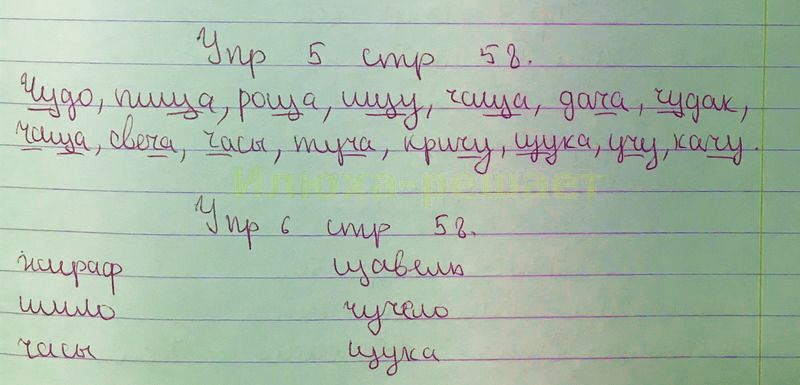 Упр 5 стр 58.
Чудо, пища, роща, ищу, чаща, дача, чудак,
чаща, свеча, часы, туча, кричу, щука, учу, качу.
Илюха-решает
Упр 6 стр 58.
жираф щавель
шило чучело
часы щука